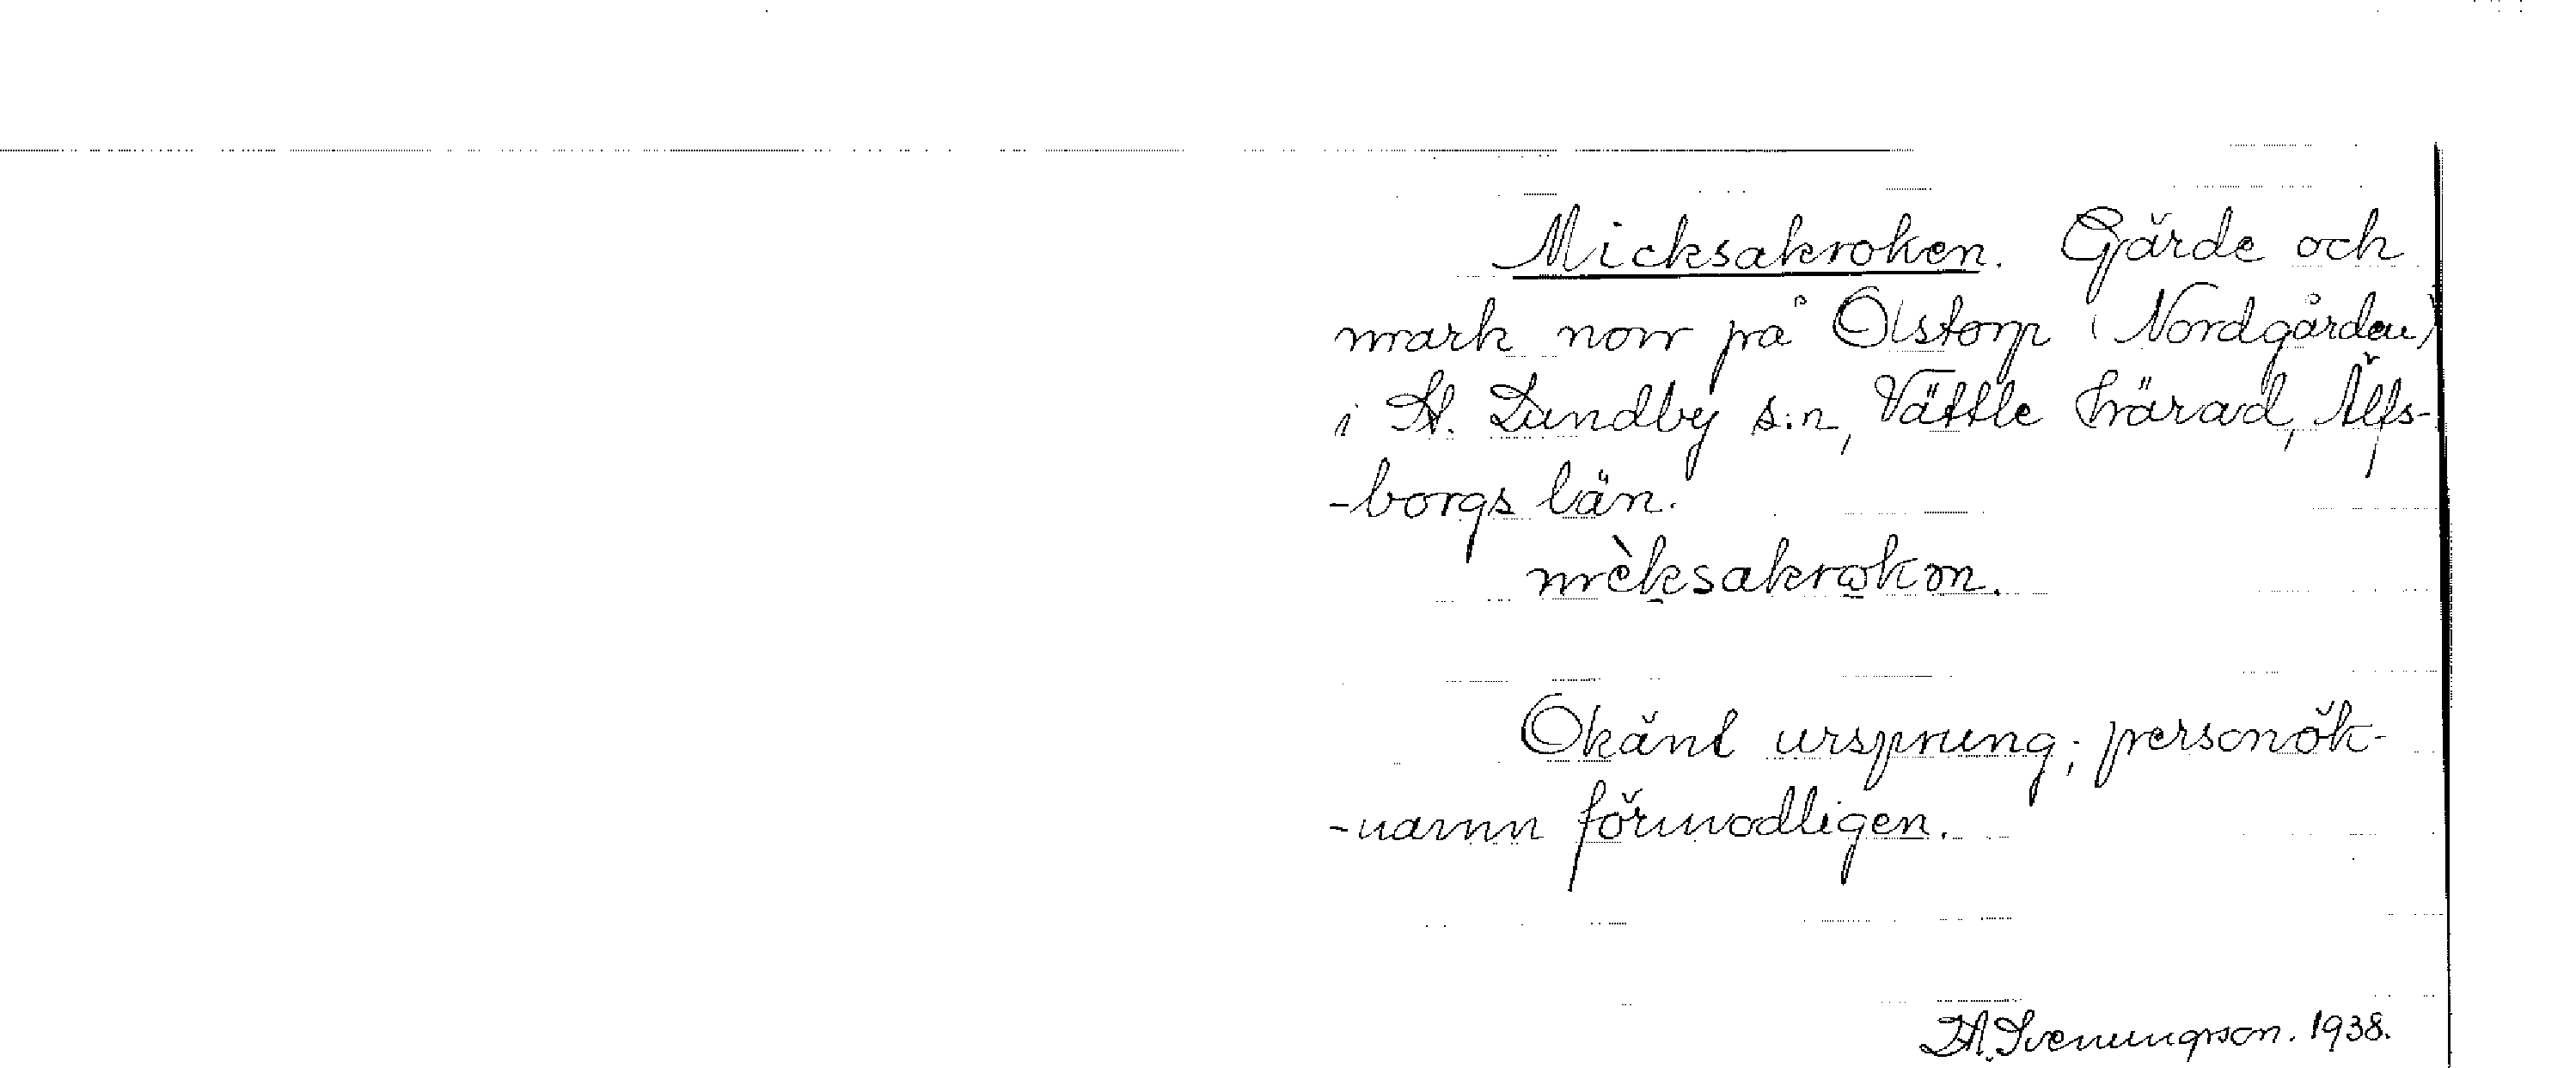 Micksakroken. Gärde och
mark norr på Olstorp (Nordgården)
i St. Lundby s:n, Vättle härad, Älfs-
-borgs län.
mèksakrokən.
Okänt ursprung; personök-
-namn förmodligen.
Svenungsson. 1938.